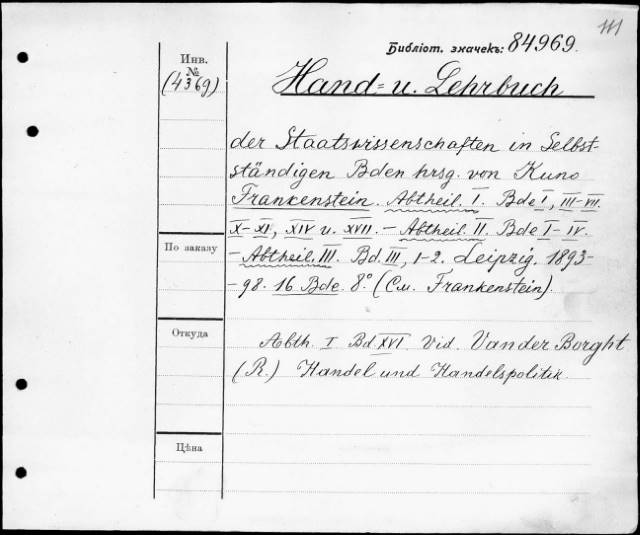 111
Библіот. значекъ: 84969.
Инв.
№
(4369)
Hand= u. Lehrbuch
der Staatswissenschaften in Selbst-
ständigen Bden hrsg. von Kuno
Frankenstein. Abtheil. I. Bde I, III-VII.
X-XI, XIV u. XVII. - Abtheil. II. Bde I-IV.
- Abtheil. III. Bd. III, 1-2. Leipzig. 1893-
-98. 16 Bde. 8° (См. Frankenstein).
По заказу
Откуда
Abth. I Bd XVI. Vid. Van der Borght
(R.) Handel und Handelspolitik.
Цѣна